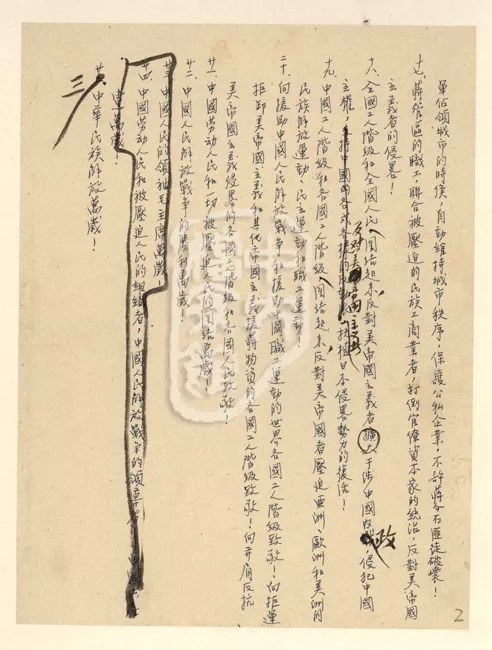 軍佔領城市的時候，自動維持城市秩序，保護公私企業，不許蔣介石匪徒破壞！
十七、蔣管區的職工，聯合被壓迫的民族工商業者，打倒官僚資本家的統治，反對美帝國
主義者的侵畧！
十八、全國工人階級和全國人民團結起來，反對美帝國主義者擴大干涉中國內政侵犯中國
主權，反對美帝國主義扶植日本侵畧勢力的復活！
十九、中國工人階級和各國工人階級團結起來，反對美帝國者壓迫亞洲、歐洲和美洲的
民族解放運動，民主運動和職工運動！
二十、向援助中國人民解放戰爭和援助中國職工運動的世界各國工人階級致敬！向拒運
拒卸美帝國主義和其他帝國主義援蔣物資的各國工人階級致敬！向并肩反抗
美帝國主義侵畧的各國工人階級和各國人民致敬！
廿一、中國勞動人民和一切被壓迫人民的團結萬歲！
廿二、中國人民解放戰爭的勝利萬歲！
廿三、中國人民的領袖毛主席萬歲！
廿四、中國勞動人民和被壓迫人民的組織者，中國人民解放戰爭的領導者
萬歲！
廿 三、中華民族解放萬歲！
2